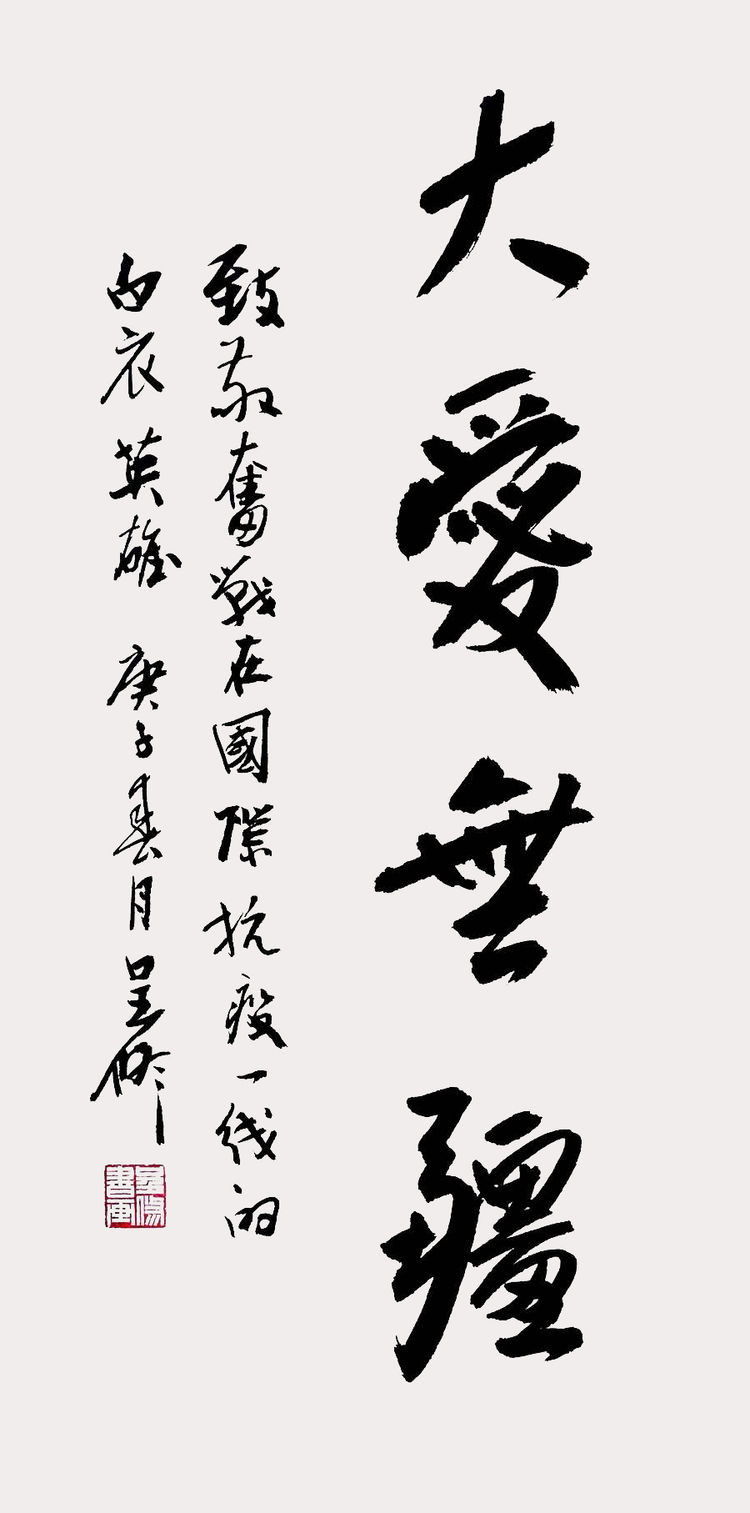 大愛無疆
致敬奮戰在國際抗疫一线的
白衣英雄 庚子春月 呈修